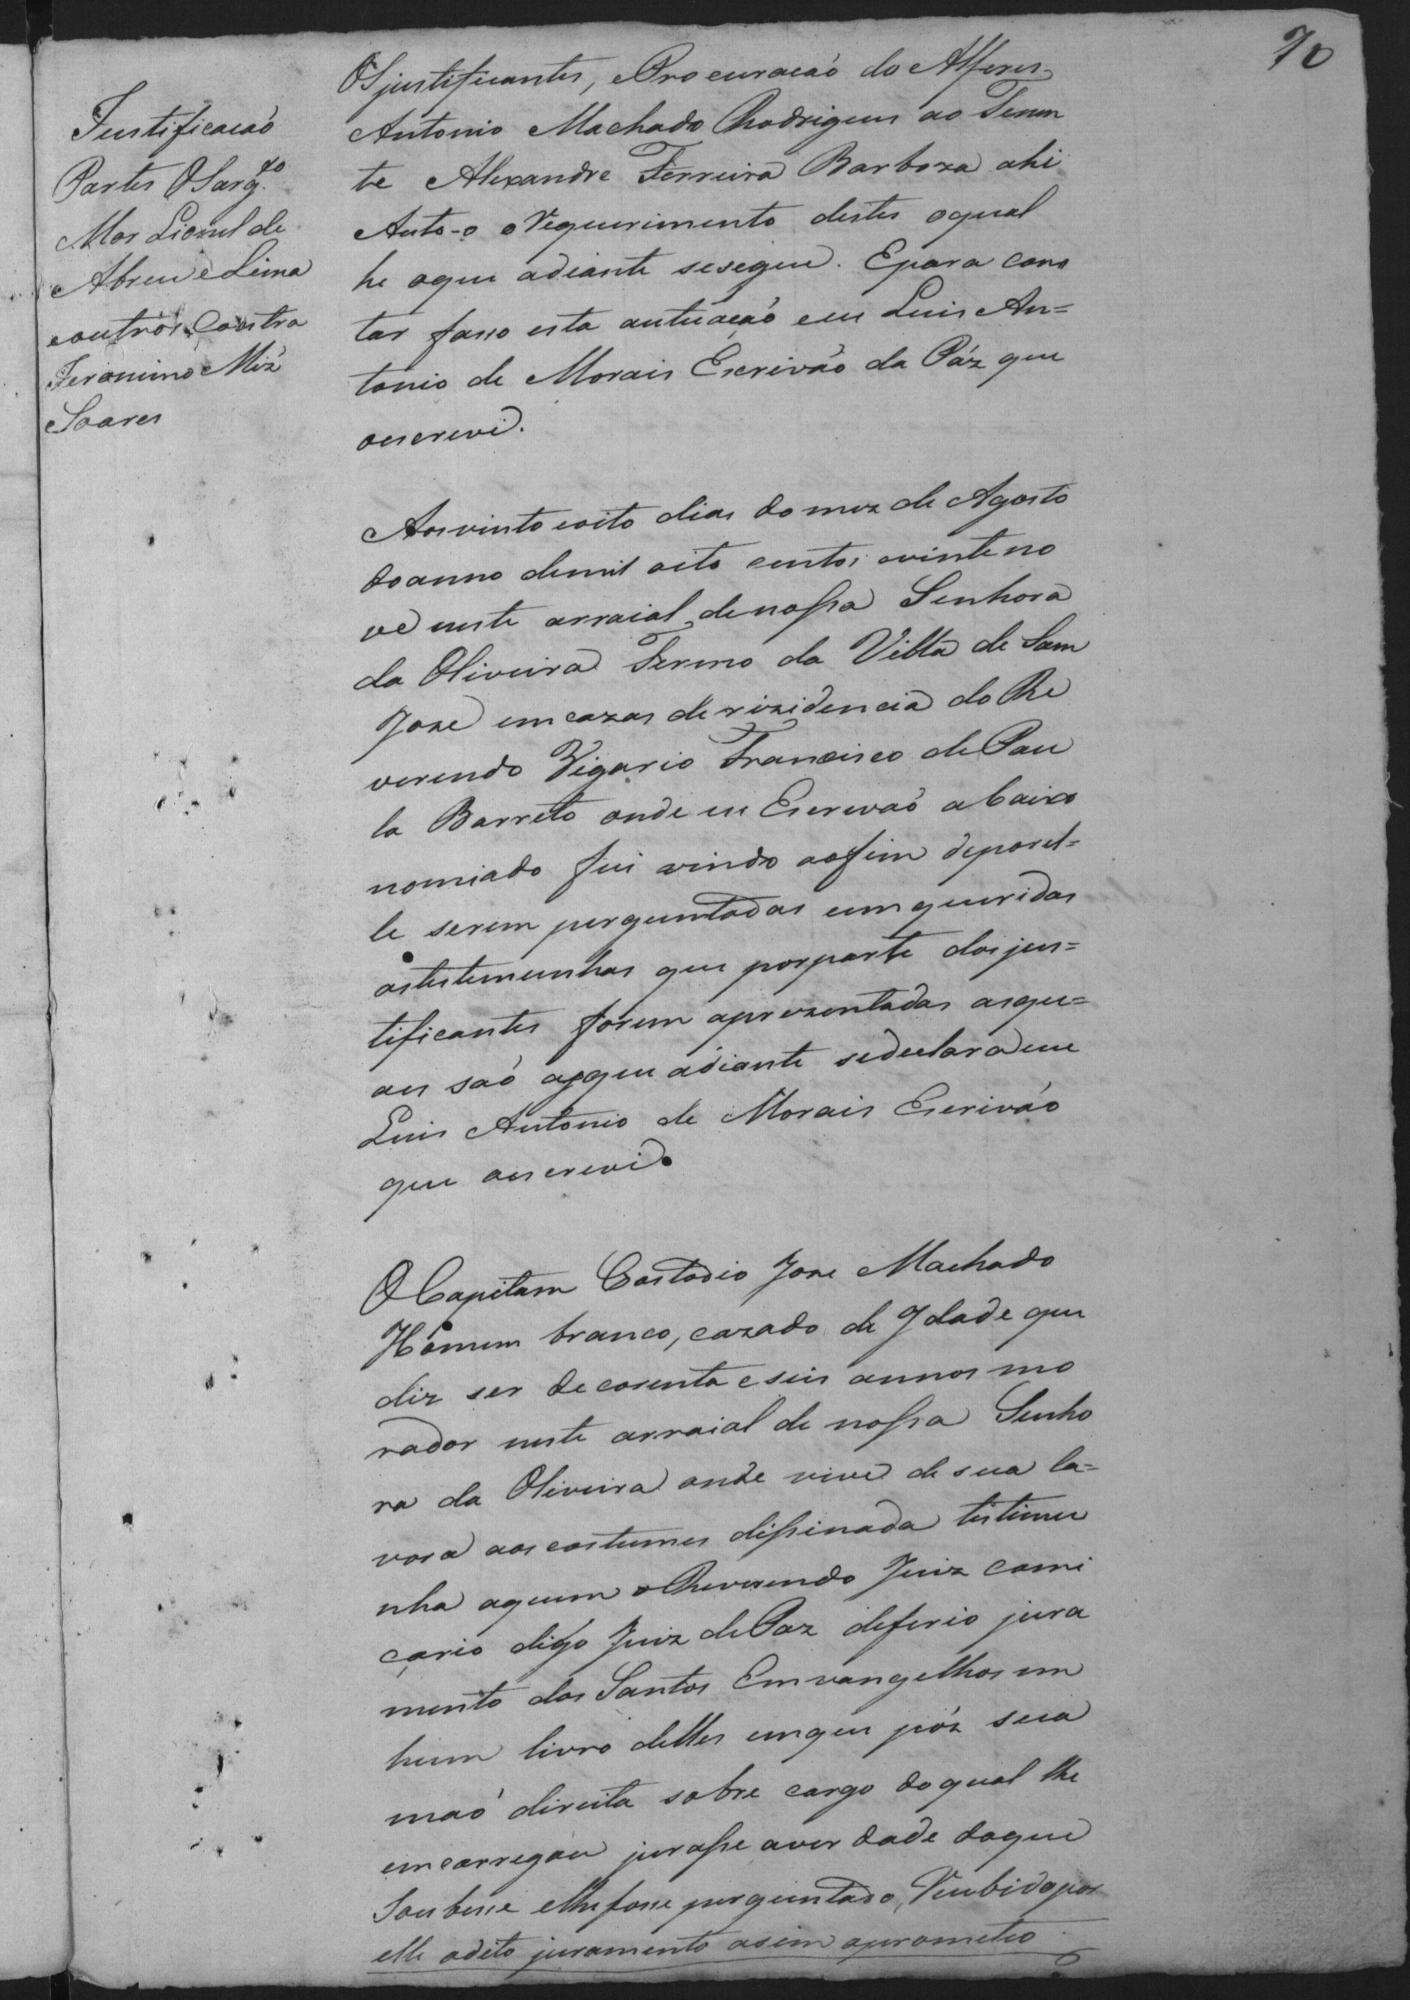 70
Justificacaó
Partes O Sarg.to
Mor Lionel de
Abreu e Lima
e outros Contra
Jeronimo Miz
Soares
OSjustificantes, eProcuracaó do Alferes
Antonio Machado Rhodrigues ao Tenen
te Alexandre Ferreira Barboza ahi
Auto-o oRequerimento destes oqual
he oque adiante sesegue. Epara cons
tar fasso esta autuacaó eeu Luis An=
tonio de Morais Escriváo da Páz que
oescrevi.
Aosvinto eoito dias do mez de Agosto
doanno demil oito centos evinteno
ve neste arraial denossa Senhora
da Oliveira Termo da Villa de Sam
Joze emcazas derizidencia do Re
verendo Vigario Francisco de Pau
la Barreto onde eu Escrevaó abaixo
nomiado fui vindo aofim deporel=
le serem perguntadas eemqueridas
astestemunhas que porparte dosjus=
tificantes forem aprezentadas asqu=
aes saó oqque adiante sedeclara eeu
Luis Antonio de Morais Escriváo
que oescrevi.
OCapitam Custodio Joze Machado
Homem branco, cazado de Ydade que
diz ser de corenta e seis annos mo
rador neste arraial de nossa Senho
ra da Oliveira onde vive de sua la=
vora aoscostumes dissenada testemu
nha aquem oReverendo Juiz Comi
çario digo Juiz dePaz deferio jura
mento dos Santos Emvangelhos em
hum livro delles emque póz sua
maó direita sobre cargo doqual lhe
emcarregou jurasse averdade doque
Soubesse elhefosse perguntado, Rescebido por
elle odito juramento asim oprometeo